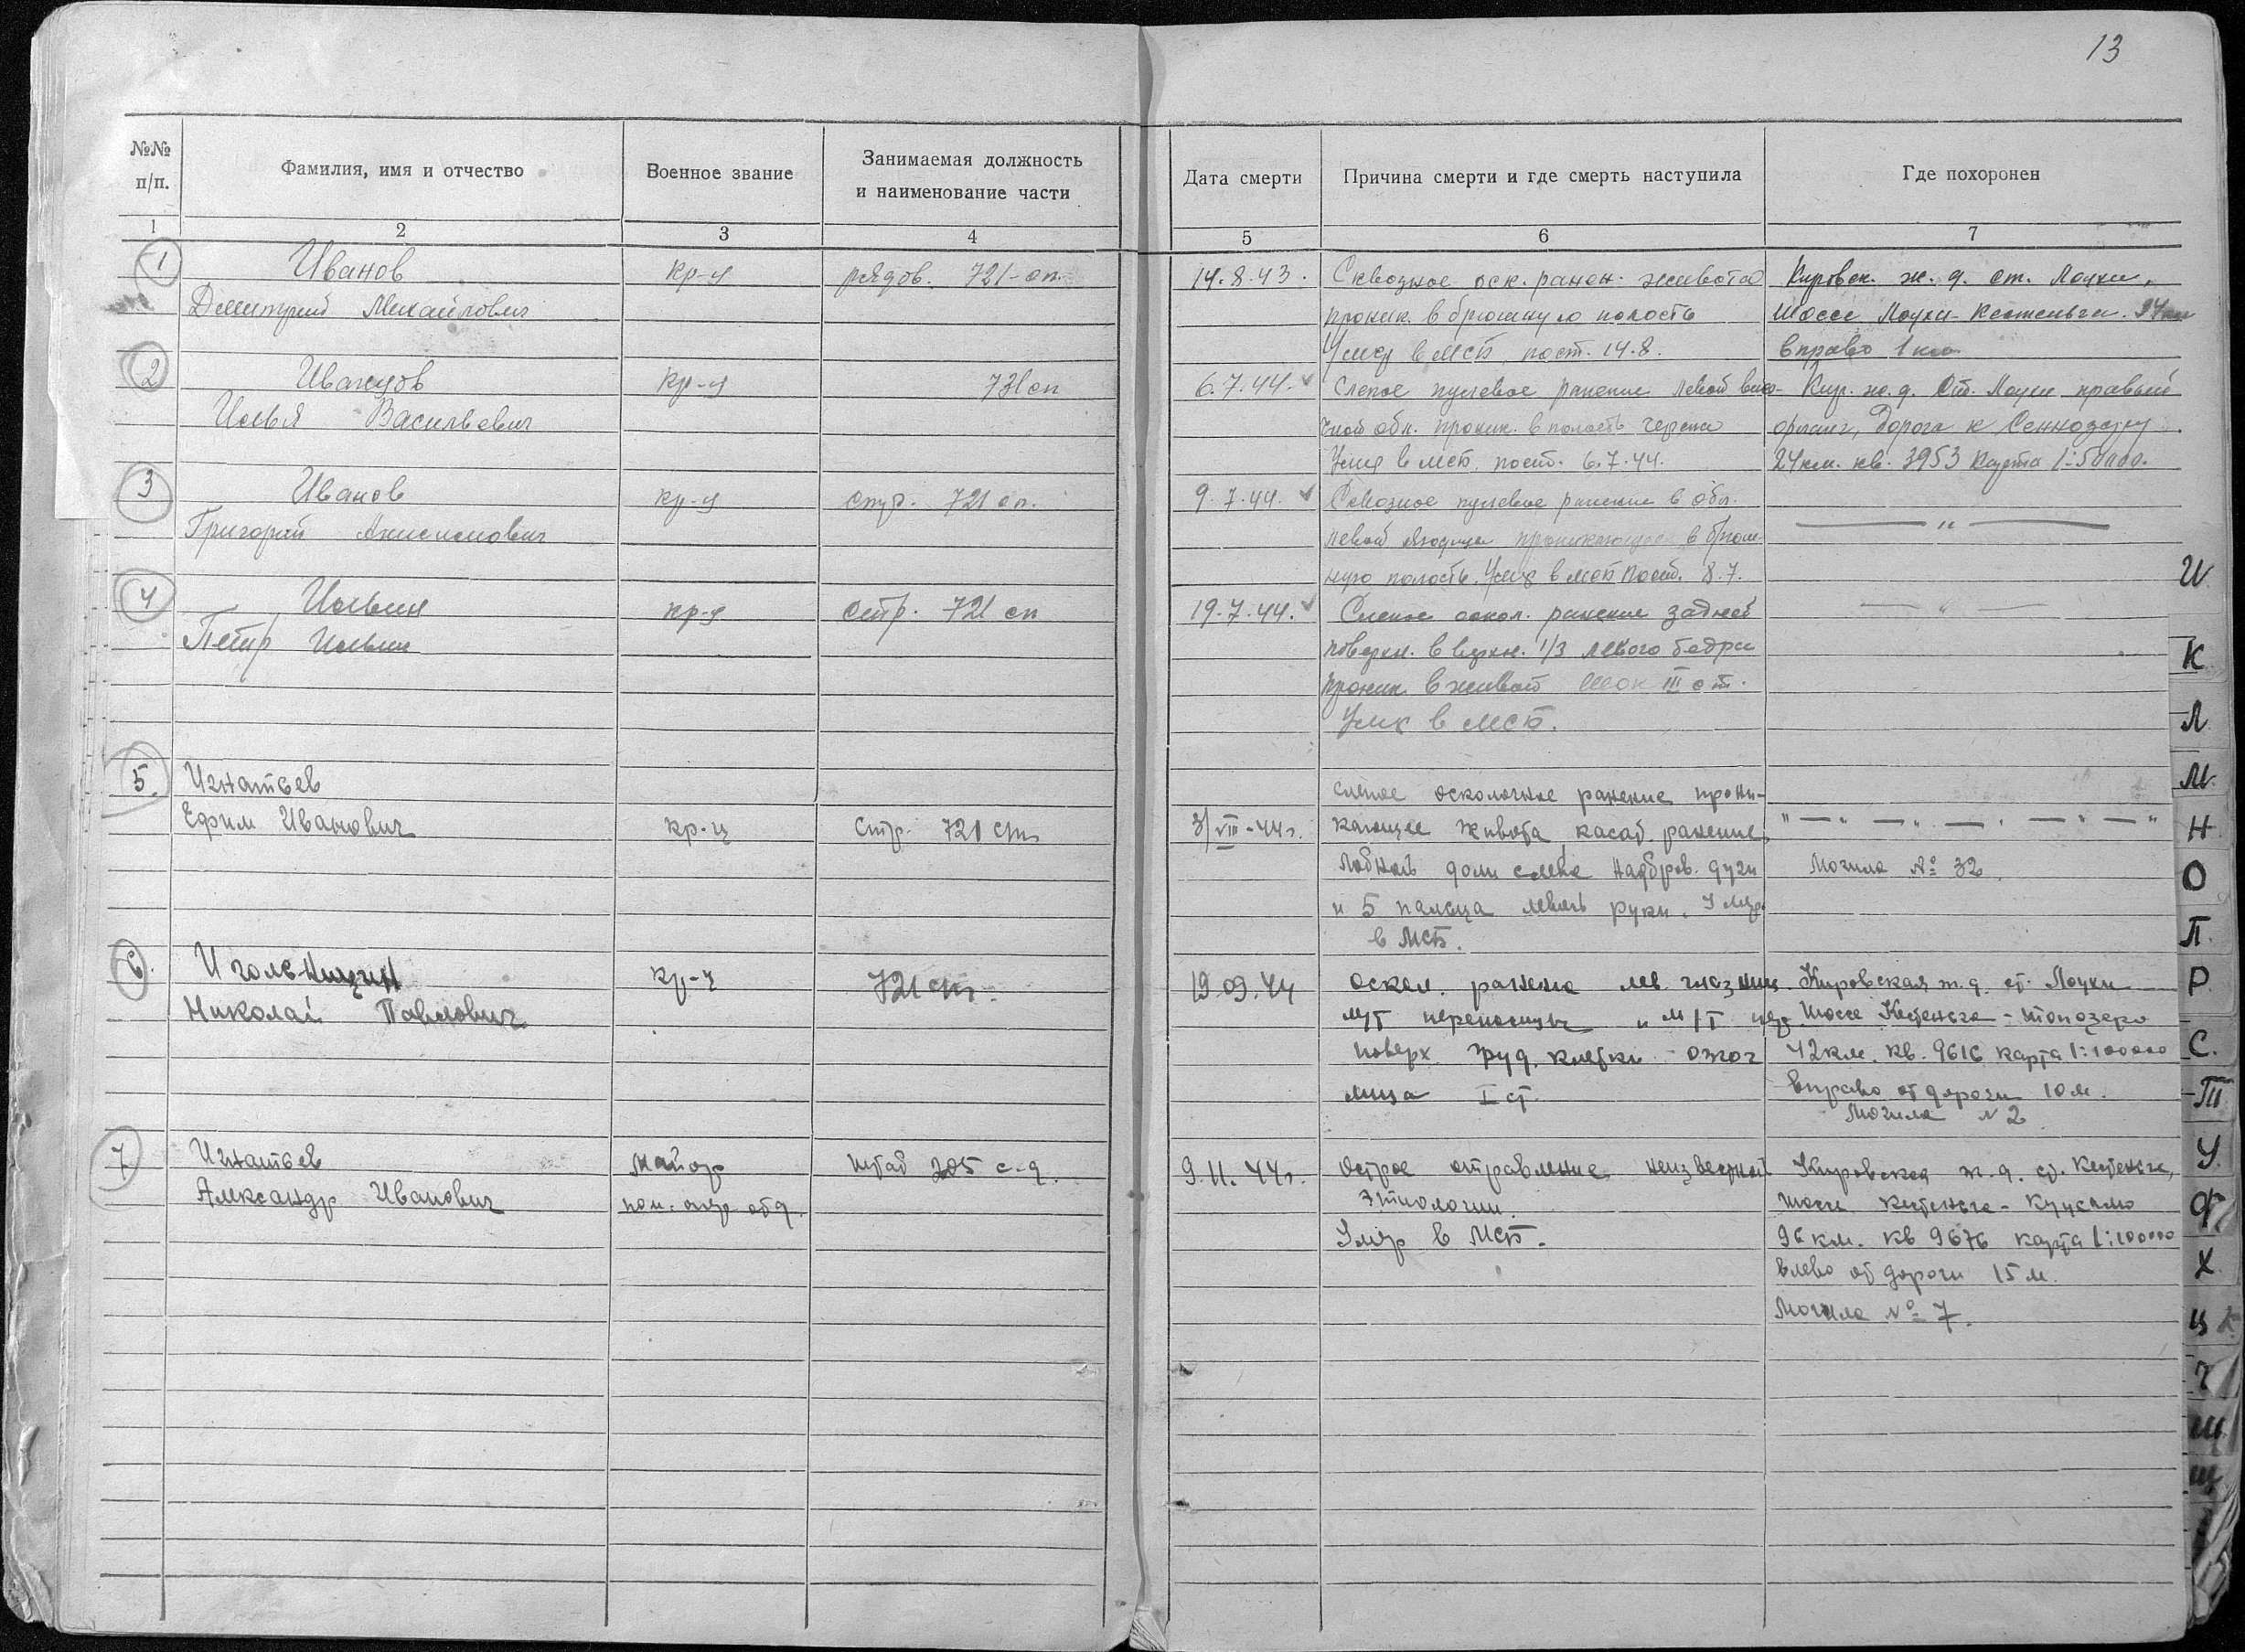 13
№№ п/п.
Фамилия, имя и отчество
Военное звание
Занимаемая должность
и наименование части
Дата смерти
Причина смерти и где смерть наступила
Где похоронен
1 2 3 4 5 6 7
1 Иванов кр-ц рядов. 721-сп. 14.8.43. Сквозное оск. ранен. живота Кировск. ж. д. ст. Лоухи,
Дмитрий Михайлович проник. в брюшную полость шоссе Лоухи-Кестеньга. 34км
Умер в МСБ пост. 14.8. вправо 1 км
2 кр-ц 731 сп 6.7.44. Слепое пулевое ранение левой висо- Кир. ж. д. ст. Лоухи правый
Илья Васильевич чной обл. проник. в полость черепа фланг, дорога к
Умер в МСБ, пост. 6.7.44. 24 км. кв. 3953 карта 1:50000.
3 Иванов кр-ц стр. 721 сп. 9.7.44. Сквозное пулевое ранение в обл.
Григорий левой ягодицы проникающее в брюш-
— " —
ную полость. Умер в МСБ пост. 8.7.
4 Ильин кр-ц стр. 721 сп 19.7.44. Слепое оскол. ранение задней — " —
Петр Ильич поверхн. в верхн. 1/3 левого бедра
проник. в живот Шок III ст.
Умер в МСБ.
5. Игнатьев слепое осколочное ранение прони-
Ефим Иванович кр-ц стр. 721 сп 3/VIII-44г. кающее живота, касат. ранение " — " — " — " — " — "
лобной доли слева надбров. дуги Могила № 32.
и 5 пальца левой руки. Умер
в МСБ.
6. кр-ц 721 сп. 19.09.44 оскол. ранение лев. глазниц. Кировская ж.д. ст. Лоухи
Николай Павлович м/т переносицы и м/т шоссе Кестеньга - Топозеро
поверх. груд. клетки - ожог 42 км. кв. 9616 карта 1:100000
лица I ст. вправо от дороги 10 м.
Могила № 2
7 Игнатьев майор штаб 205 с.д. 9.11.44г. Острое отравление неизвестной Кировская ж.д. ст. Кестеньга,
Александр Иванович пом. опер. отд. этиологии. шоссе Кестеньга - Куусамо
Умер в МСБ. 96 км. кв 9676 карта 1:100000
влево от дороги 15 м.
Могила № 7.
И
К
Л
М
Н
О
П
Р
С.
Т
У
Ф
Х
Ц
Ч
Ш
Щ